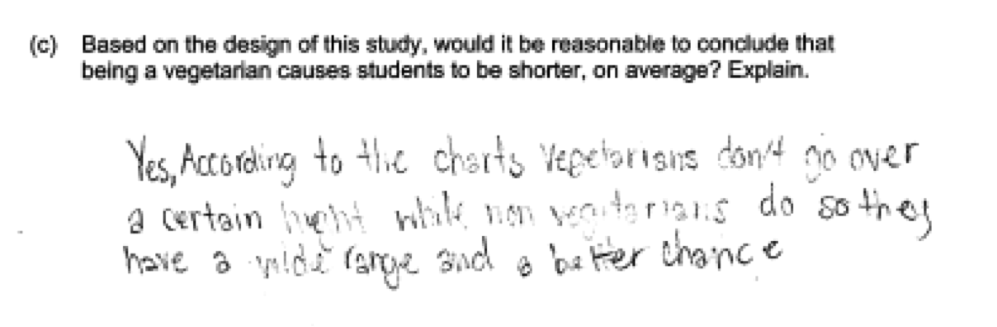 (c) Based on the design of this study, would it be reasonable to conclude that
being a vegetarian causes students to be shorter, on average? Explain.
Yes, According to the charts Vegetarians don't go over
a certain hieght while non vegitarians do so they
have a wide range and a better chance